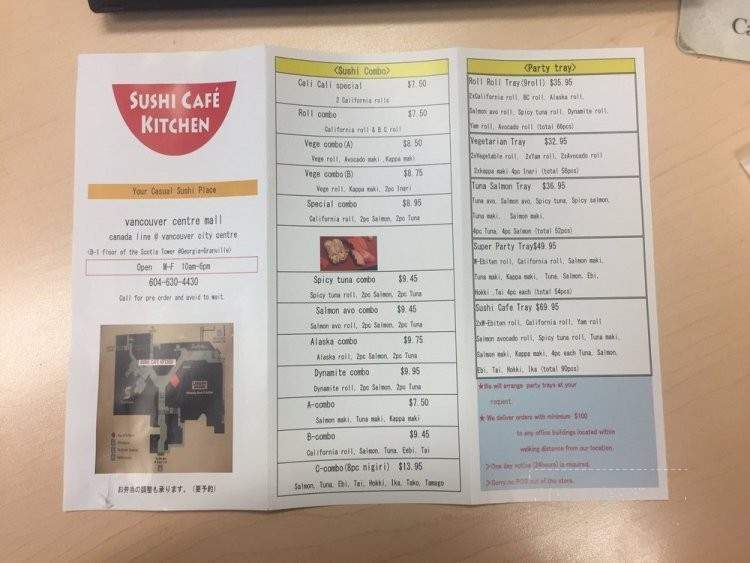 SUSHI CAFÉ
KITCHEN
Your Casual Sushi Place
vancouver centre mall
canada line @ vancouver city centre
(B-1 floor of the Scotia Tower @Georgia+Granville)
Open M-F 10am-6pm
604-630-4430
Call for pre order and avoid to wait.
SUSHI CAFE KITCHEN
お弁当の調整も承ります。(要予約)
<Sushi Combo>
Cali Cali special $7.50
2 California rolls
Roll combo $7.50
California roll & B.C roll
Vege combo(A) $8.50
Vege roll, Avocado maki, Kappa maki
Vege combo(B) $8.75
Vege roll, Kappa maki, 2pc Inari
Special combo $8.95
California roll, 2pc Salmon, 2pc Tuna
Spicy tuna combo $9.45
Spicy tuna roll, 2pc Salmon, 2pc Tuna
Salmon avo combo $9.45
Salmon avo roll, 2pc Salmon, 2pc Tuna
Alaska combo $9.75
Alaska roll, 2pc Salmon, 2pc Tuna
Dynamite combo $9.95
Dynamite roll, 2pc Salmon, 2pc Tuna
A-combo $7.50
Salmon maki, Tuna maki, Kappa maki
B-combo $9.45
California roll, Salmon, Tuna, Eebi, Tai
C-combo(8pc nigiri) $13.95
Salmon, Tuna, Ebi, Tai, Hokki, Ika, Tako, Tamago
<Party tray>
Roll Roll Tray(9roll) $35.95
2xCalifornia roll, BC roll, Alaska roll,
Salmon avo roll, Spicy tuna roll, Dynamite roll,
Yam roll, Avocado roll (total 66pcs)
Vegetarian Tray $32.95
2xVegetable roll, 2xYam roll, 2xAvocado roll
2xkappa maki 4pc Inari (total 56pcs)
Tuna Salmon Tray $36.95
Tuna avo, Salmon avo, Spicy tuna, Spicy salmon,
Tuna maki, Salmon maki,
4pc Tuna, 4pc Salmon (total 52pcs)
Super Party Tray$49.95
W-Ebiten roll, California roll, Salmon maki,
Tuna maki, Kappa maki, Tuna, Salmon, Ebi,
Hokki ,Tai 4pc each (total 54pcs)
Sushi Cafe Tray $69.95
2xW-Ebiten roll, California roll, Yam roll
Salmon avocado roll, Spicy tuna roll, Tuna maki,
Salmon maki, Kappa maki, 4pc each Tuna, Salmon,
Ebi, Tai, Hokki, Ika (total 90pcs)
★We will arrange party trays at your
request.
★ We deliver orders with minimum $100
to any office buildings located within
walking distance from our location.
>One day notice (24hours) is required.
>Sorry no POS out of the store.